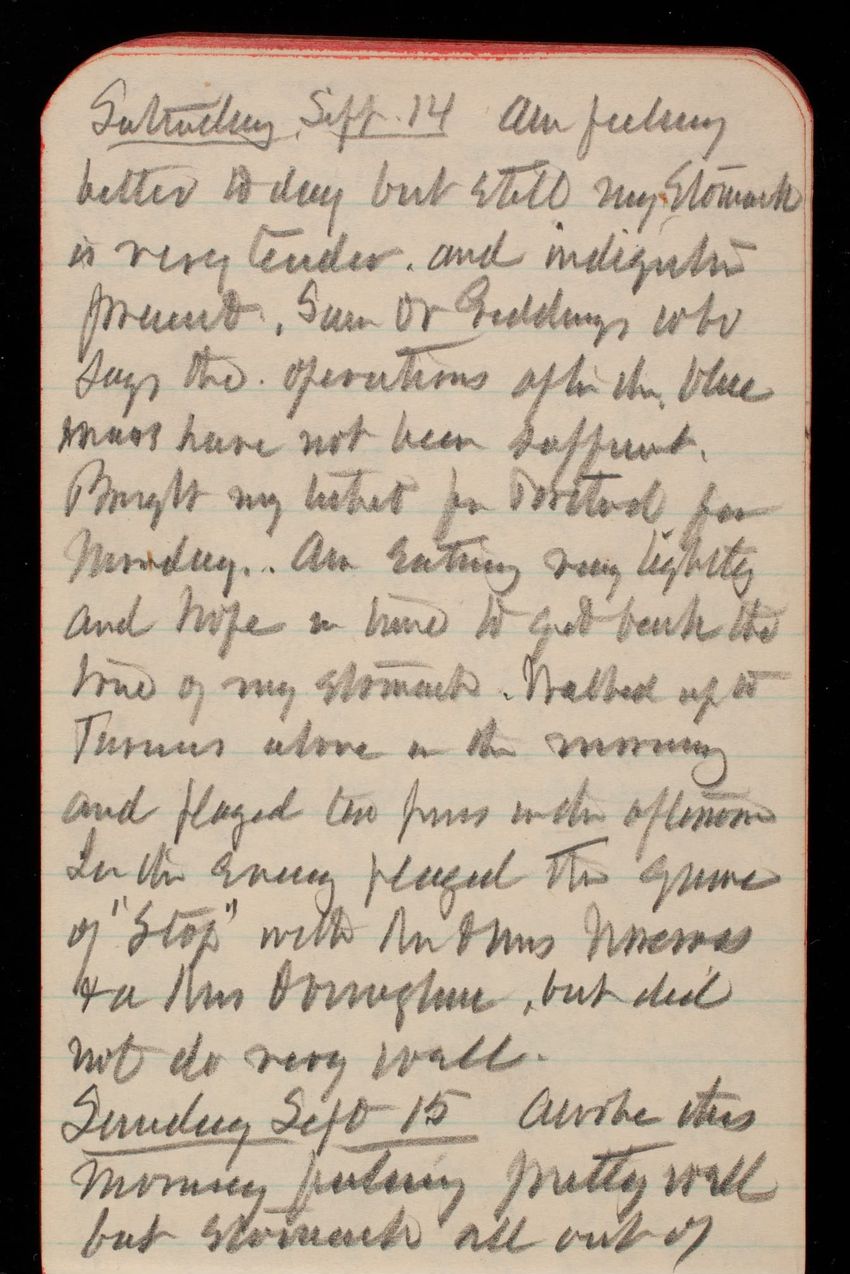 Saturday Sept. 14 Am feeling
better to day but still my stomach
is very tender. and indigestion
present. Saw Dr Geddings who
says the. operations after the blue
mass have not been sufficient.
Bought my ticket for for
Monday.. Am eating very lightly
and hope in time to get back the
tone of my stomach. Walked up to
Turners alone in the morning
and played two in the afternoon
In the evening played the game
of "Stop" with Mr & Mrs
& a Mrs Donoghue, but did
not do very well.
Sunday Sept 15 Awoke this
morning feeling pretty well
but stomach all out of